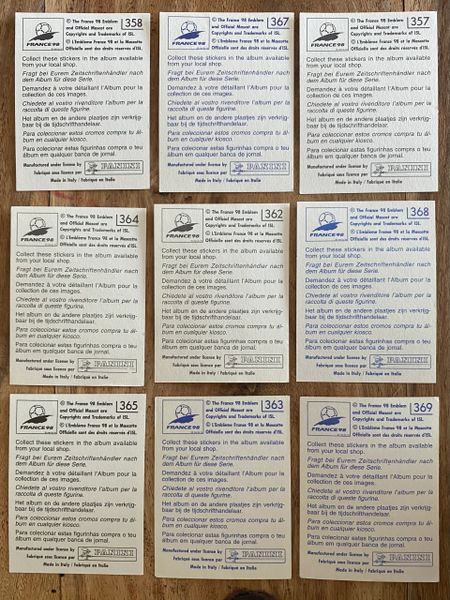 FRANCE 98
© The France 98 Emblem
and Official Mascot are
Copyrights and Trademarks of ISL.
© L'Emblème France 98 et la Mascotte
Officielle sont des droits réservés d'ISL.
358
Collect these stickers in the album available
from your local shop.
Fragt bei Eurem Zeitschriftenhändler nach
dem Album für diese Serie.
Demandez à votre détaillant l'Album pour la
collection de ces images.
Chiedete al vostro rivenditore l'album per la
raccolta di queste figurine.
Het album en de andere plaatjes zijn verkrijg-
baar bij de tijdschrifthandelaar.
Para coleccionar estos cromos compra tu ál-
bum en cualquier kiosco.
Para colecionar estas figurinhas compra o teu
álbum em qualquer banca de jornal.
Manufactured under licence by
Fabriqué sous licence par
PANINI
Made in Italy / Fabriqué en Italie
FRANCE 98
© The France 98 Emblem
and Official Mascot are
Copyrights and Trademarks of ISL.
© L'Emblème France 98 et la Mascotte
Officielle sont des droits réservés d'ISL.
367
Collect these stickers in the album available
from your local shop.
Fragt bei Eurem Zeitschriftenhändler nach
dem Album für diese Serie.
Demandez à votre détaillant l'Album pour la
collection de ces images.
Chiedete al vostro rivenditore l'album per la
raccolta di queste figurine.
Het album en de andere plaatjes zijn verkrijg-
baar bij de tijdschrifthandelaar.
Para coleccionar estos cromos compra tu ál-
bum en cualquier kiosco.
Para colecionar estas figurinhas compra o teu
álbum em qualquer banca de jornal.
Manufactured under licence by
Fabriqué sous licence par
PANINI
Made in Italy / Fabriqué en Italie
FRANCE 98
© The France 98 Emblem
and Official Mascot are
Copyrights and Trademarks of ISL.
© L'Emblème France 98 et la Mascotte
Officielle sont des droits réservés d'ISL.
357
Collect these stickers in the album available
from your local shop.
Fragt bei Eurem Zeitschriftenhändler nach
dem Album für diese Serie.
Demandez à votre détaillant l'Album pour la
collection de ces images.
Chiedete al vostro rivenditore l'album per la
raccolta di queste figurine.
Het album en de andere plaatjes zijn verkrijg-
baar bij de tijdschrifthandelaar.
Para coleccionar estos cromos compra tu ál-
bum en cualquier kiosco.
Para colecionar estas figurinhas compra o teu
álbum em qualquer banca de jornal.
Manufactured under licence by
Fabriqué sous licence par
PANINI
Made in Italy / Fabriqué en Italie
FRANCE 98
© The France 98 Emblem
and Official Mascot are
Copyrights and Trademarks of ISL.
© L'Emblème France 98 et la Mascotte
Officielle sont des droits réservés d'ISL.
364
Collect these stickers in the album available
from your local shop.
Fragt bei Eurem Zeitschriftenhändler nach
dem Album für diese Serie.
Demandez à votre détaillant l'Album pour la
collection de ces images.
Chiedete al vostro rivenditore l'album per la
raccolta di queste figurine.
Het album en de andere plaatjes zijn verkrijg-
baar bij de tijdschrifthandelaar.
Para coleccionar estos cromos compra tu ál-
bum en cualquier kiosco.
Para colecionar estas figurinhas compra o teu
álbum em qualquer banca de jornal.
Manufactured under licence by
Fabriqué sous licence par
PANINI
Made in Italy / Fabriqué en Italie
FRANCE 98
© The France 98 Emblem
and Official Mascot are
Copyrights and Trademarks of ISL.
© L'Emblème France 98 et la Mascotte
Officielle sont des droits réservés d'ISL.
362
Collect these stickers in the album available
from your local shop.
Fragt bei Eurem Zeitschriftenhändler nach
dem Album für diese Serie.
Demandez à votre détaillant l'Album pour la
collection de ces images.
Chiedete al vostro rivenditore l'album per la
raccolta di queste figurine.
Het album en de andere plaatjes zijn verkrijg-
baar bij de tijdschrifthandelaar.
Para coleccionar estos cromos compra tu ál-
bum en cualquier kiosco.
Para colecionar estas figurinhas compra o teu
álbum em qualquer banca de jornal.
Manufactured under licence by
Fabriqué sous licence par
PANINI
Made in Italy / Fabriqué en Italie
FRANCE 98
© The France 98 Emblem
and Official Mascot are
Copyrights and Trademarks of ISL.
© L'Emblème France 98 et la Mascotte
Officielle sont des droits réservés d'ISL.
368
Collect these stickers in the album available
from your local shop.
Fragt bei Eurem Zeitschriftenhändler nach
dem Album für diese Serie.
Demandez à votre détaillant l'Album pour la
collection de ces images.
Chiedete al vostro rivenditore l'album per la
raccolta di queste figurine.
Het album en de andere plaatjes zijn verkrijg-
baar bij de tijdschrifthandelaar.
Para coleccionar estos cromos compra tu ál-
bum en cualquier kiosco.
Para colecionar estas figurinhas compra o teu
álbum em qualquer banca de jornal.
Manufactured under licence by
Fabriqué sous licence par
PANINI
Made in Italy / Fabriqué en Italie
FRANCE 98
© The France 98 Emblem
and Official Mascot are
Copyrights and Trademarks of ISL.
© L'Emblème France 98 et la Mascotte
Officielle sont des droits réservés d'ISL.
365
Collect these stickers in the album available
from your local shop.
Fragt bei Eurem Zeitschriftenhändler nach
dem Album für diese Serie.
Demandez à votre détaillant l'Album pour la
collection de ces images.
Chiedete al vostro rivenditore l'album per la
raccolta di queste figurine.
Het album en de andere plaatjes zijn verkrijg-
baar bij de tijdschrifthandelaar.
Para coleccionar estos cromos compra tu ál-
bum en cualquier kiosco.
Para colecionar estas figurinhas compra o teu
álbum em qualquer banca de jornal.
Manufactured under licence by
Fabriqué sous licence par
PANINI
Made in Italy / Fabriqué en Italie
FRANCE 98
© The France 98 Emblem
and Official Mascot are
Copyrights and Trademarks of ISL.
© L'Emblème France 98 et la Mascotte
Officielle sont des droits réservés d'ISL.
363
Collect these stickers in the album available
from your local shop.
Fragt bei Eurem Zeitschriftenhändler nach
dem Album für diese Serie.
Demandez à votre détaillant l'Album pour la
collection de ces images.
Chiedete al vostro rivenditore l'album per la
raccolta di queste figurine.
Het album en de andere plaatjes zijn verkrijg-
baar bij de tijdschrifthandelaar.
Para coleccionar estos cromos compra tu ál-
bum en cualquier kiosco.
Para colecionar estas figurinhas compra o teu
álbum em qualquer banca de jornal.
Manufactured under licence by
Fabriqué sous licence par
PANINI
Made in Italy / Fabriqué en Italie
FRANCE 98
© The France 98 Emblem
and Official Mascot are
Copyrights and Trademarks of ISL.
© L'Emblème France 98 et la Mascotte
Officielle sont des droits réservés d'ISL.
369
Collect these stickers in the album available
from your local shop.
Fragt bei Eurem Zeitschriftenhändler nach
dem Album für diese Serie.
Demandez à votre détaillant l'Album pour la
collection de ces images.
Chiedete al vostro rivenditore l'album per la
raccolta di queste figurine.
Het album en de andere plaatjes zijn verkrijg-
baar bij de tijdschrifthandelaar.
Para coleccionar estos cromos compra tu ál-
bum en cualquier kiosco.
Para colecionar estas figurinhas compra o teu
álbum em qualquer banca de jornal.
Manufactured under licence by
Fabriqué sous licence par
PANINI
Made in Italy / Fabriqué en Italie